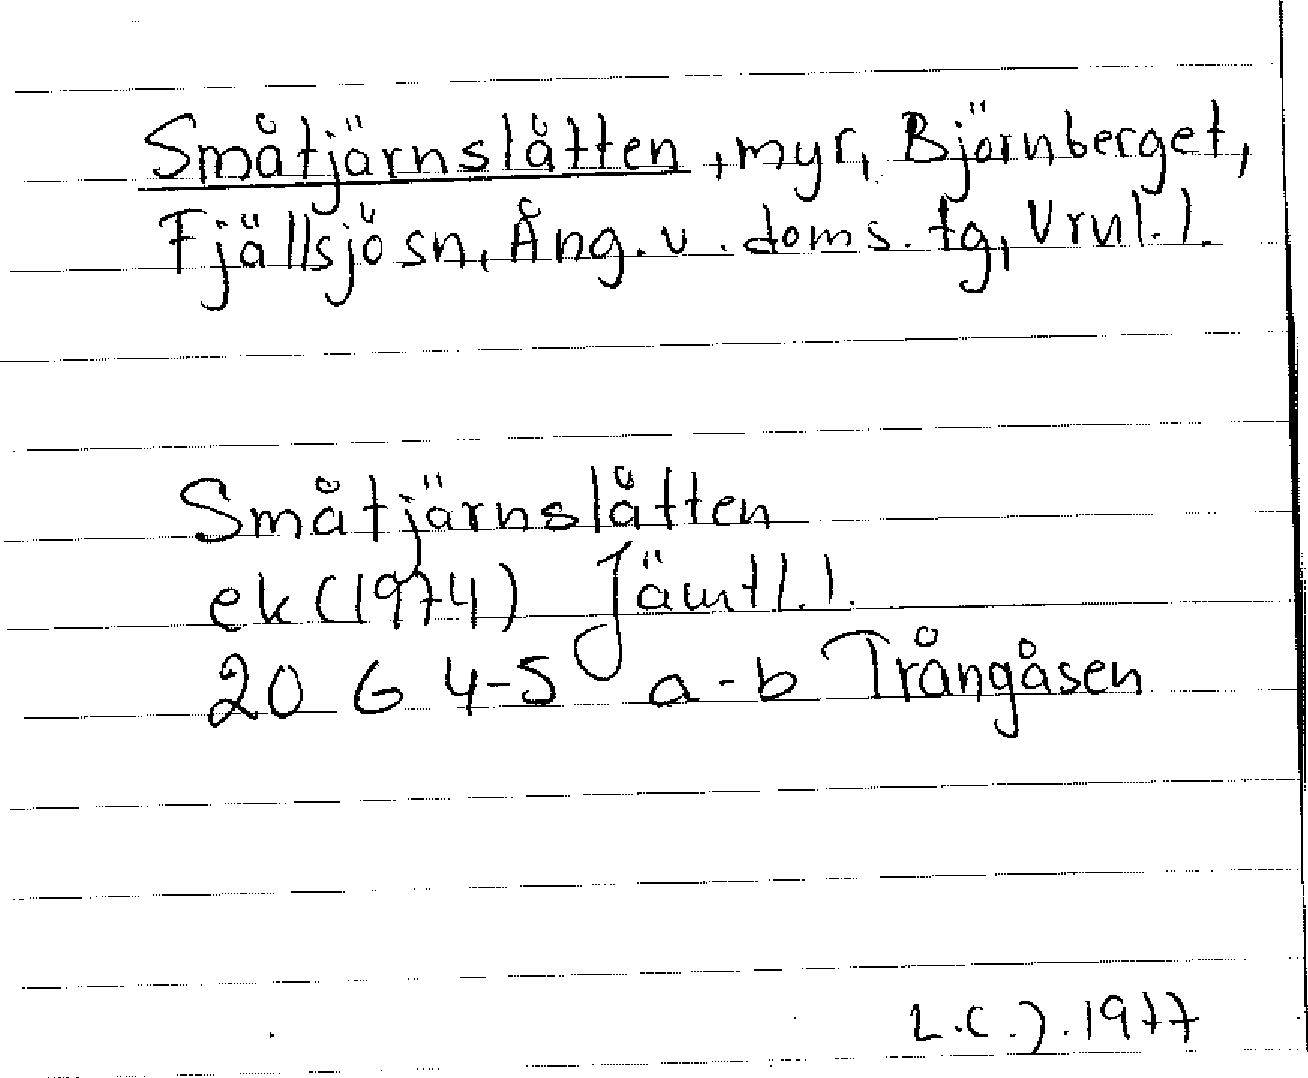 Småtjärnslåtten, myr, Björnberget,
Fjällsjö sn, Ång. v. doms. tg, Vrnl. l.
Småtjärnslåtten
ek (1974) Jämtl. l.
20 G 4-5 a-b Trångåsen
L.C.J. 1977